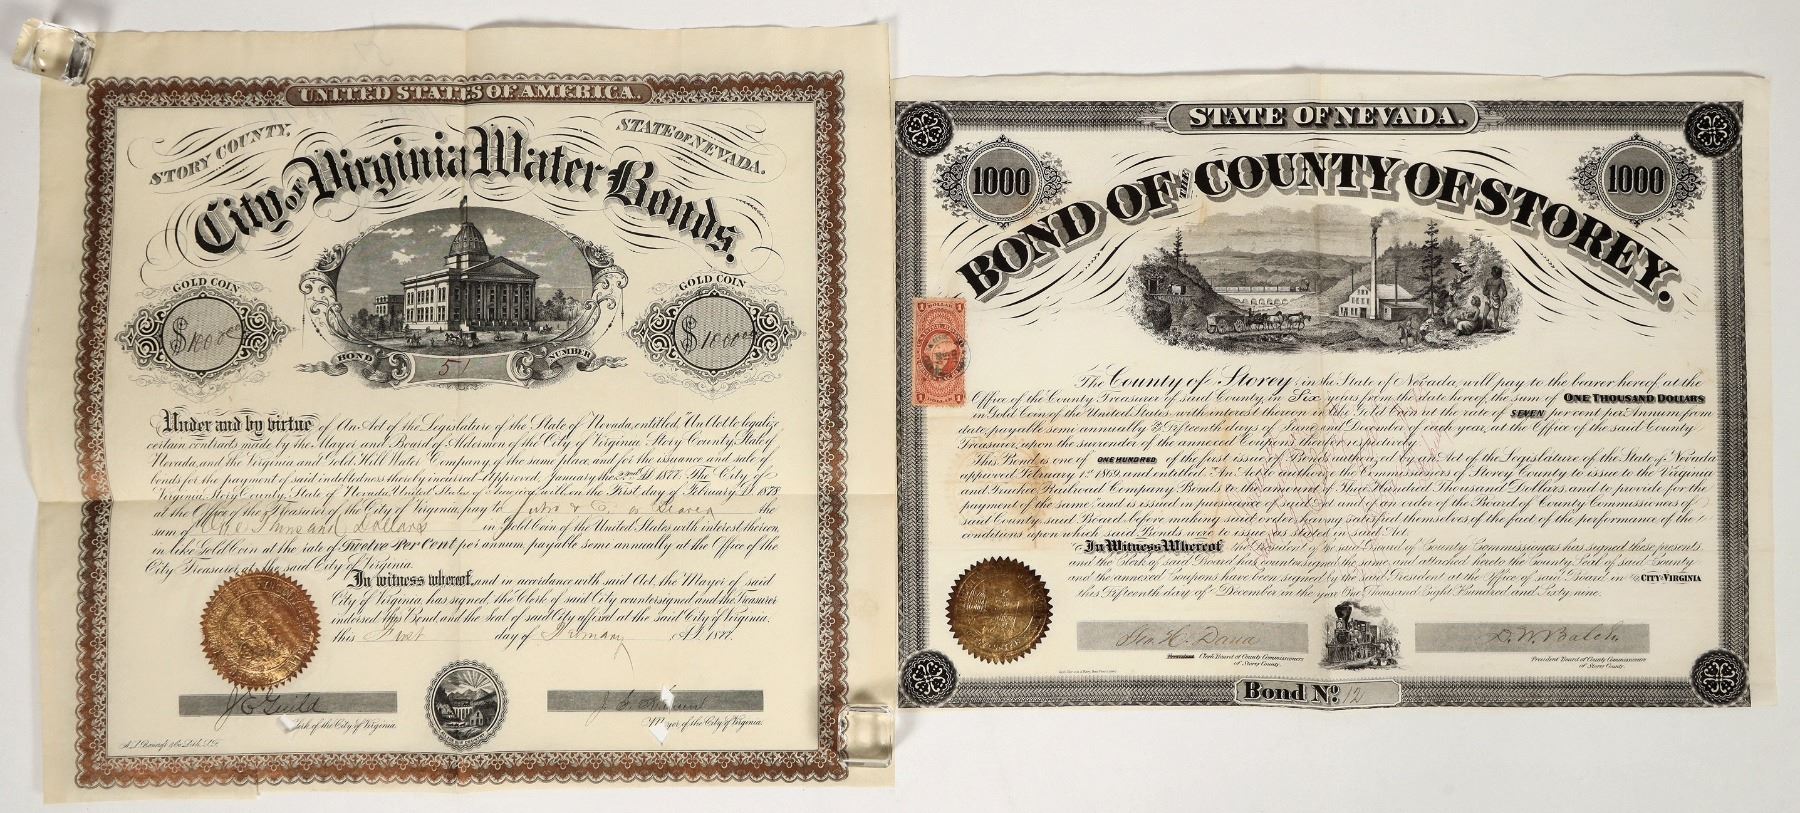 UNITED STATES OF AMERICA.
STORY COUNTY,
STATE OF NEVADA.
City of Virginia Water Bonds.
GOLD COIN
$1000.00
GOLD COIN
$1000.00
BOND NUMBER
51
Under and by virtue of An Act of the Legislature of the State of Nevada, entitled "An Act to legalize
certain contracts made by the Mayor and Board of Aldermen of the City of Virginia Story County, State of
Nevada, and the Virginia and Gold Hill Water Company of the same place, and for the issuance and sale of
bonds for the payment of said indebtedness thereby incurred" Approved, January the 22nd A.D. 1877. The City of
Virginia, Story County, State of Nevada, United States of America, will on the First day of February A.D. 1878
at the Office of the Treasurer of the City of Virginia, pay to or Bearer the
sum of One Thousand Dollars in Gold Coin of the United States with interest thereon,
in like Gold Coin at the rate of Twelve Per Cent per annum, payable semi annually at the Office of the
City Treasurer at the said City of Virginia.
In witness whereof, and in accordance with said Act, the Mayor of said
City of Virginia, has signed, the Clerk of said City countersigned and the Treasurer
indorsed this Bond and the Seal of said City affixed at the said City of Virginia,
this First day of February A.D. 1877.
J E Guild
Clerk of the City of Virginia.
Mayor of the City of Virginia.
STATE OF NEVADA.
1000
1000
BOND OF THE COUNTY OF STOREY.
The County of Storey, in the State of Nevada, will pay to the bearer hereof, at the
Office of the County Treasurer of said County, in Six years from the date hereof, the sum of ONE THOUSAND DOLLARS
in Gold Coin of the United States, with interest thereon in like Gold Coin at the rate of SEVEN per cent, per Annum from
date, payable semi annually on Fifteenth days of June and December of each year, at the Office of the said County
Treasurer, upon the surrender of the annexed Coupons therefor respectively.
This Bond is one of ONE HUNDRED of the first issue of Bonds authorized by an Act of the Legislature of the State of Nevada
approved February 1st 1869, and entitled "An Act to authorize the Commissioners of Storey County to issue to the Virginia
and Truckee Railroad Company Bonds to the amount of Three Hundred Thousand Dollars, and to provide for the
payment of the same" and is issued in pursuance of said Act and of an order of the Board of County Commissioners of
said County, said Board, before making said order, having satisfied themselves of the fact of the performance of the
conditions upon which said Bonds were to issue as stated in said Act.
In Witness Whereof the President of the said Board of County Commissioners has signed these presents
and the Clerk of said Board has countersigned the same, and attached hereto the County Seal of said County
and the annexed Coupons have been signed by the said President at the Office of said Board in CITY OF VIRGINIA
this Fifteenth day of December in the year One Thousand Eight Hundred and Sixty nine.
Geo. H. Dana
Clerk Board of County Commissioners
of Storey County.
D. W. Balch
President Board of County Commissioners
of Storey County.
Bond No. 12